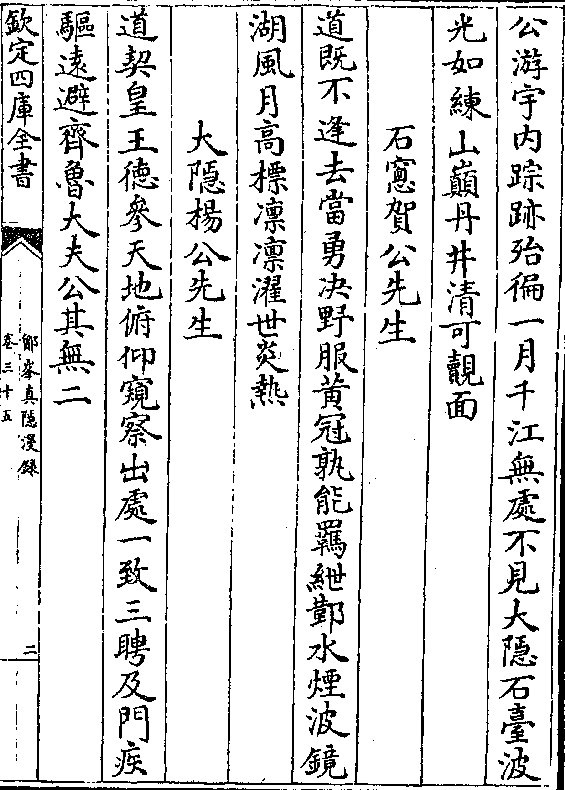 公游宇内踪跡殆徧一月千江無處不見大隠石臺波
光如練山巔丹井清可覿面
石窻賀公先生
道既不逢去當勇決野服黄冠孰能羈紲鄞水煙波鏡
湖風月高標凛凛濯世炎熱
大隠楊公先生
道契皇王德參天地俯仰窺察出處一致三聘及門疾
驅遠避齊魯大夫公其無二
欽定四庫全書
鄮峯真隠漫録
卷三十五
二